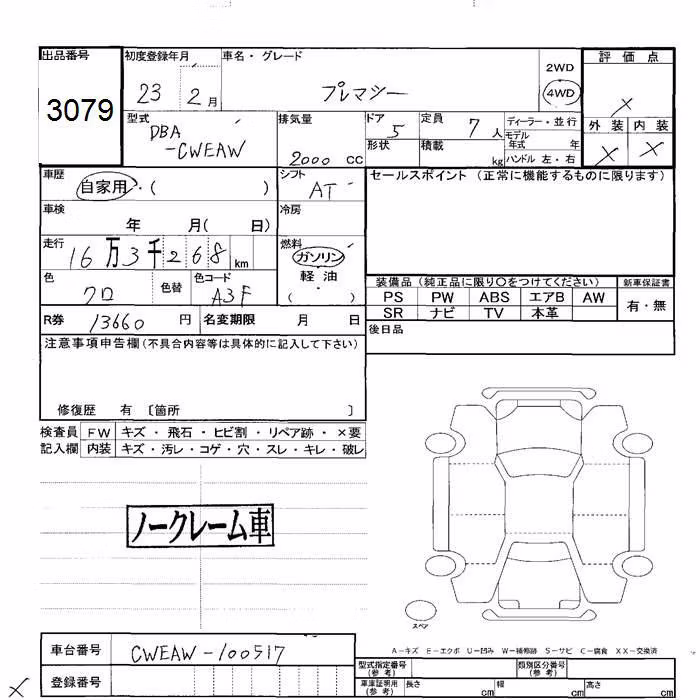 出品番号 初度登録年月 車名・グレード 評価点
3079 23 2月 プレマシー 2WD 4WD ×
型式 DBA -CWEAW 排気量 2000 cc ドア 5 定員 7人 ディーラー・並行 外装 内装
形状 積載 kg モデル年式 年 ハンドル 左・右 × ×
車歴 自家用・( ) シフト AT セールスポイント (正常に機能するものに限ります)
車検 年 月( 日) 冷房
走行 16万3千268 km 燃料 ガソリン
軽油
( )
色 クロ 色替 色コード A3F 装備品 (純正品に限り○をつけてください) 新車保証書
PS PW ABS エアB AW 有・無
SR ナビ TV 本革
R券 13660 円 名変期限 月 日 後日品
注意事項申告欄(不具合内容等は具体的に記入して下さい)
修復歴 有 〔箇所 〕
検査員 FW キズ・飛石・ヒビ割・リペア跡・×要
記入欄 内装 キズ・汚レ・コゲ・穴・スレ・キレ・破レ
ノークレーム車
スペア
A-キズ E-エクボ U-凹み W-補修跡 S-サビ C-腐食 XX-交換済
車台番号 CWEAW-100517 型式指定番号(参考) 類別区分番号(参考)
× 登録番号 車庫証明用(参考) 長さ cm 幅 cm 高さ cm